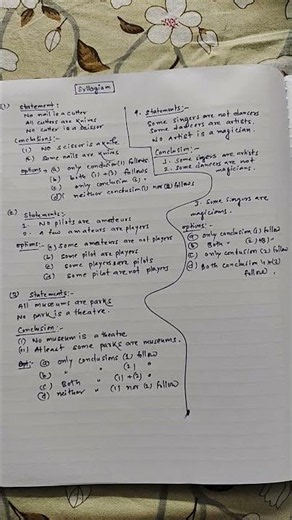 Syllogism
(1) Statement:
No nail is a cutter
All cutters are knives
No cutter is a scissor
Conclusions:-
(1) No scissor is a knife
(2) Some nails are knives
options:- (a) only conclusion (1) follows
(b) both (1) + (2) follows
(c) only conclusion (2) -
(d) neither conclusion (1) nor (2) follows
(2) Statements:-
1. No pilots are amateurs
2. A few amateurs are players
options:- (a) some amateurs are not players
(b) some pilot are players
(c) some players are pilots
(d) some pilot are not players
(3) Statements:-
All museums are parks
No park is a theatre.
Conclusion:-
(1) No museum is a theatre
(11) At least some parks are museums.
opt:- (a) only conclusions (1) follow
(b) " " (2) "
(c) Both " (1) + (2) "
(d) neither " (1) nor (2) follow
4. Statements:-
Some singers are not dancers
Some dancers are artists.
No Artist is a magician.
Conclusion:-
1. Some singers are artists
2. Some dancers are not
magicians.
3. Some singers are
magicians.
options:-
(a) only conclusion (1) follow
(b) Both " (2) + (3) "
(c) only conclusion (2) follow
(d) Both conclusion
follow.